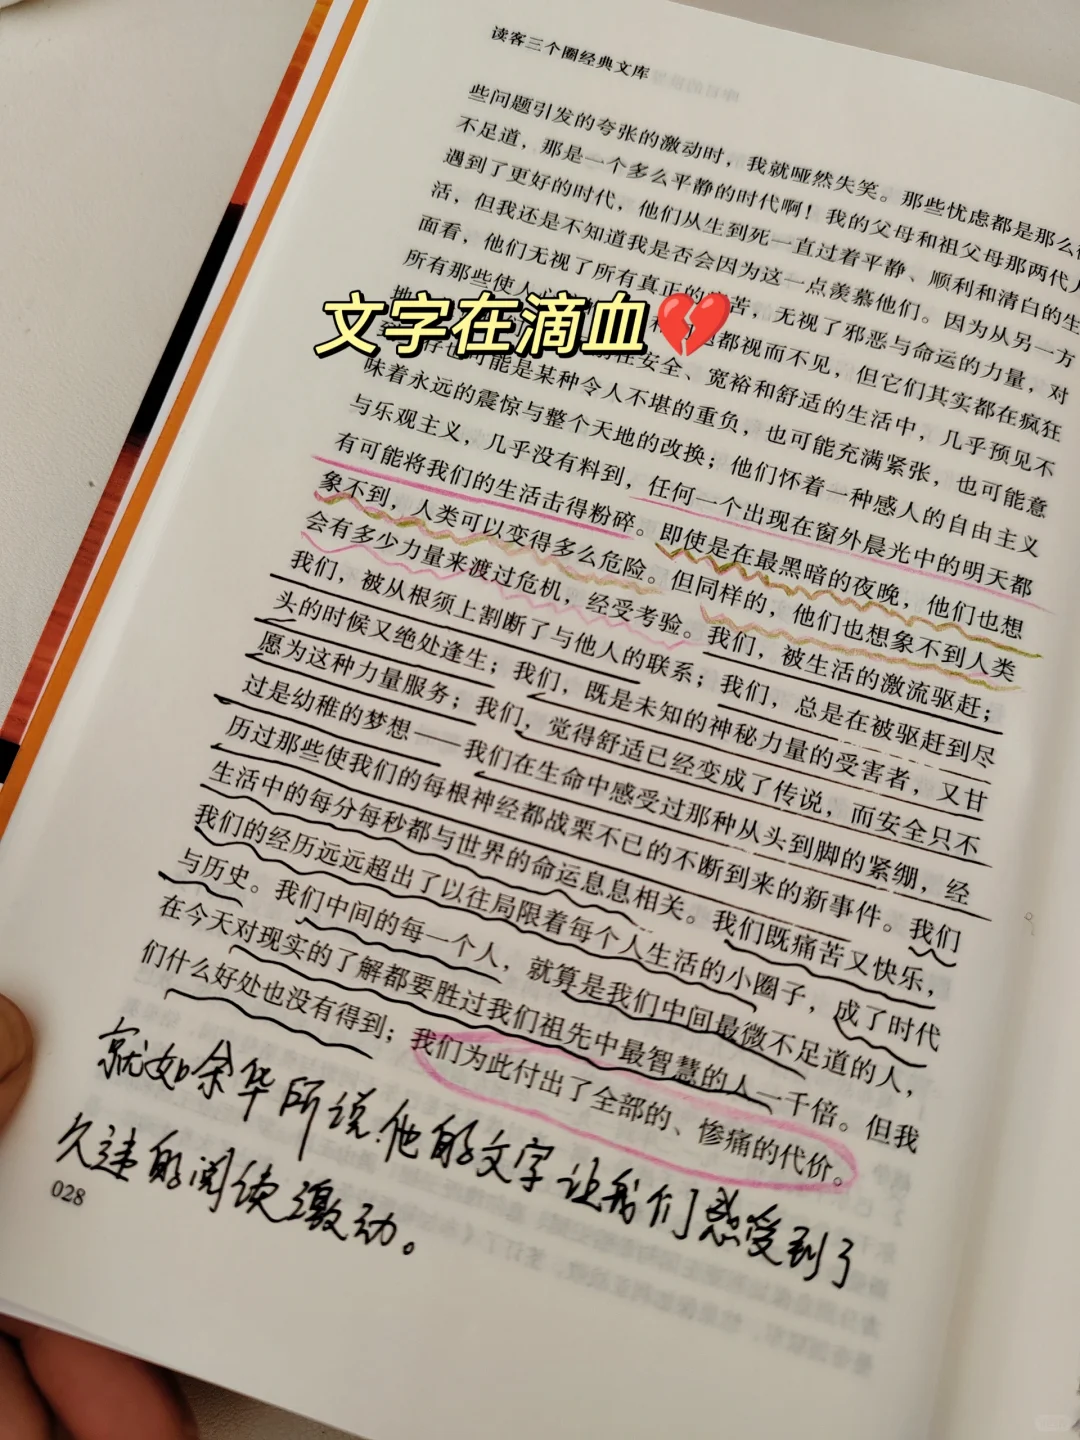 读客三个圈经典文库
些问题引发的夸张的激动时，我就哑然失笑。那些忧虑都是那么
不足道，那是一个多么平静的时代啊！我的父母和祖父母那两代人
遇到了更好的时代，他们从生到死一直过着平静、顺利和清白的生
活，但我还是不知道我是否会因为这一点羡慕他们。因为从另一方
面看，他们无视了所有真正的苦，无视了邪恶与命运的力量，对
所有那些使人都视而不见，但它们其实都在疯狂
文字在滴血💔
地在安全、宽裕和舒适的生活中，几乎预见不
也可能是某种令人不堪的重负，也可能充满紧张，也可能意
味着永远的震惊与整个天地的改换；他们怀着一种感人的自由主义
与乐观主义，几乎没有料到，任何一个出现在窗外晨光中的明天都
有可能将我们的生活击得粉碎。即使是在最黑暗的夜晚，他们也想
象不到，人类可以变得多么危险。但同样的，他们也想象不到人类
会有多少力量来渡过危机，经受考验。我们，被生活的激流驱赶；
我们，被从根须上割断了与他人的联系；我们，总是在被驱赶到尽
头的时候又绝处逢生；我们，既是未知的神秘力量的受害者，又甘
愿为这种力量服务；我们，觉得舒适已经变成了传说，而安全只不
过是幼稚的梦想——我们在生命中感受过那种从头到脚的紧绷，经
历过那些使我们的每根神经都战栗不已的不断到来的新事件。我们
生活中的每分每秒都与世界的命运息息相关。我们既痛苦又快乐，
我们的经历远远超出了以往局限着每个人生活的小圈子，成了时代
与历史。我们中间的每一个人，就算是我们中间最微不足道的人，
在今天对现实的了解都要胜过我们祖先中最智慧的人一千倍。但我
们什么好处也没有得到；我们为此付出了全部的、惨痛的代价。
就如余华所说：他的文字让我们感受到了
久违的阅读激动。
028